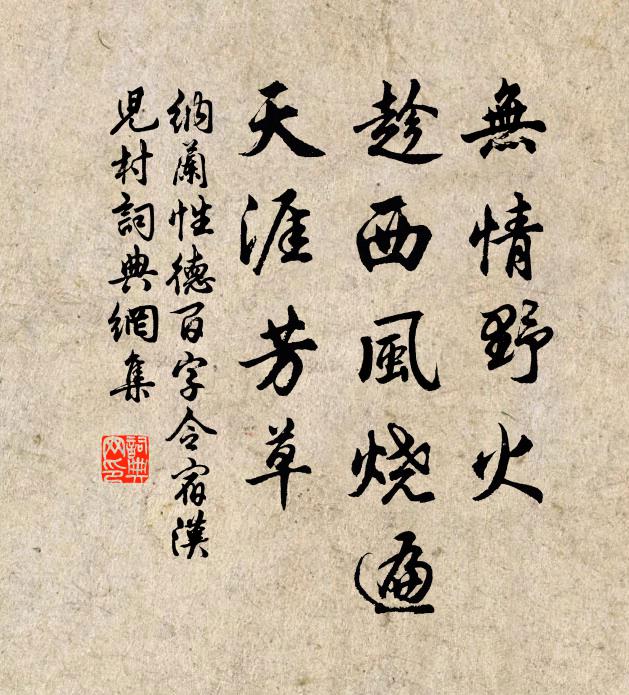 無情野火
趁西風燒遍
天涯芳草
納蘭性德百字令宿漢
兒村詞典網集
詞典網印